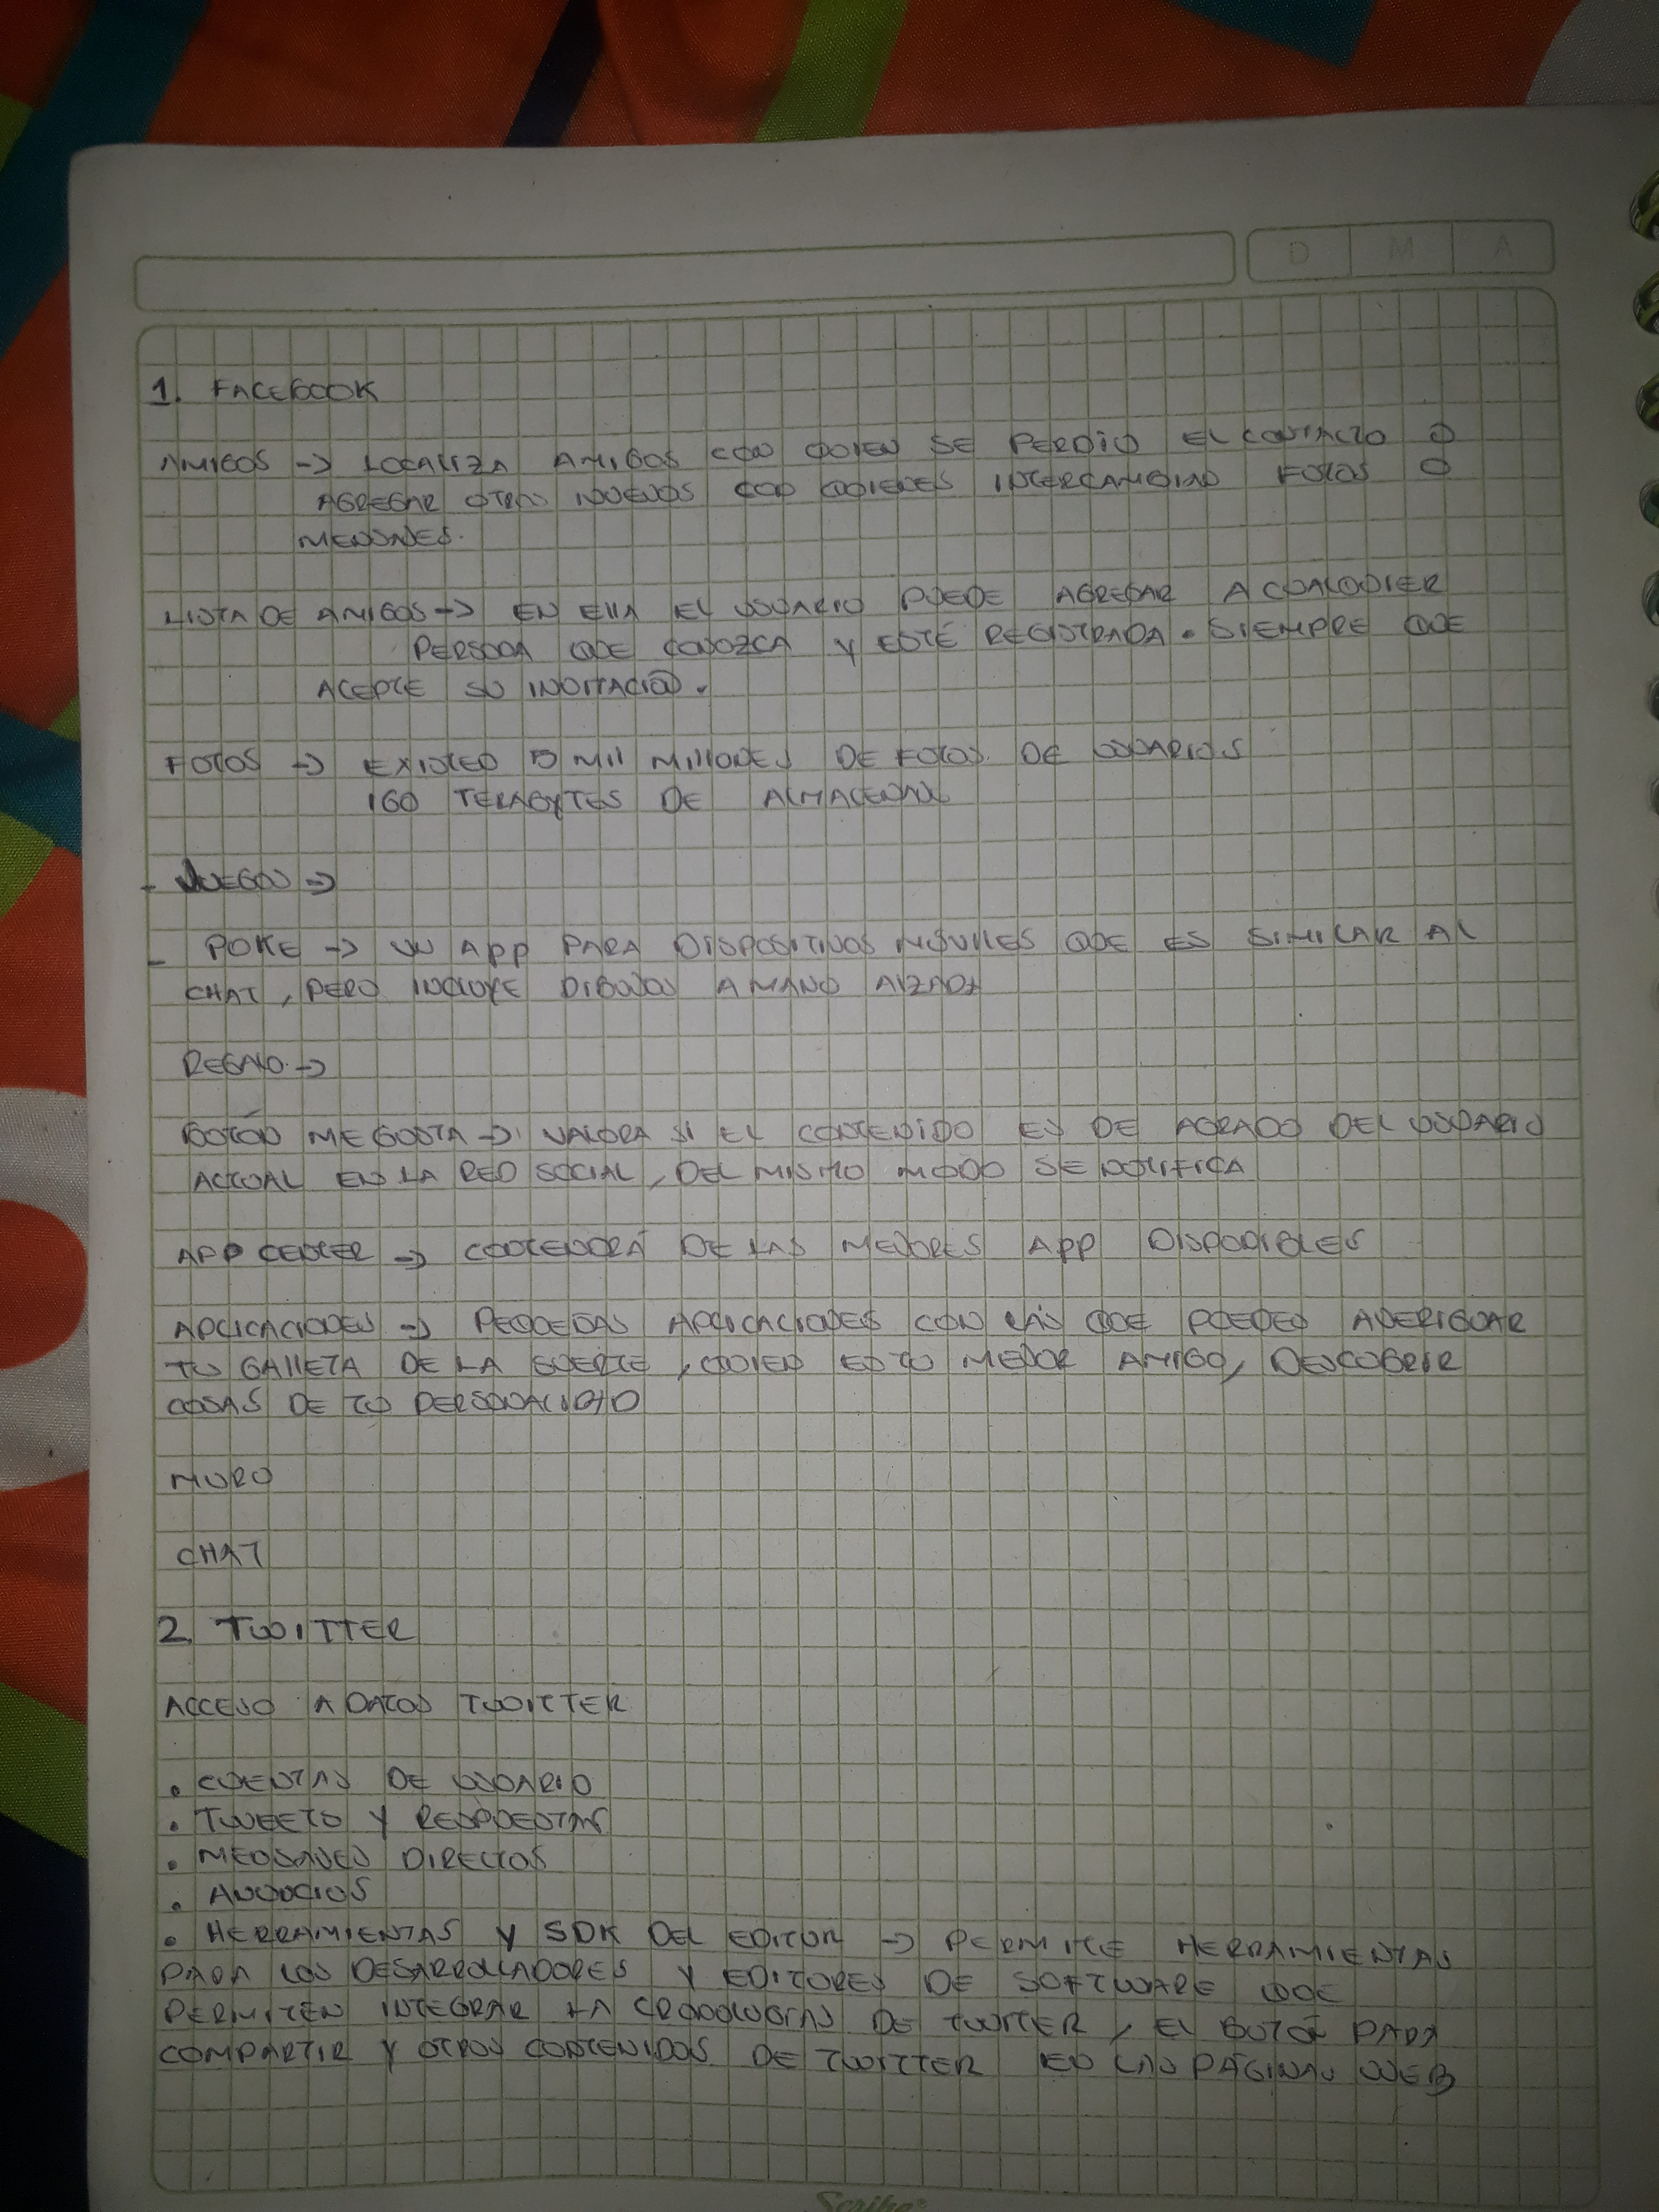 D M A
1. FACEBOOK
AMIGOS -> LOCALIZA AMIGOS CON QUIEN SE PERDIÓ EL CONTACTO O
AGREGAR OTROS NUEVOS CON QUIENES INTERCAMBIAR FOTOS O
MENSAJES.
LISTA DE AMIGOS -> EN ELLA EL USUARIO PUEDE AGREGAR A CUALQUIER
PERSONA QUE CONOZCA Y ESTÉ REGISTRADA. SIEMPRE QUE
ACEPTE SU INVITACIÓN.
FOTOS -> EXISTEN MIL MILLONES DE FOTOS DE USUARIOS
160 TERABYTES DE ALMACENAJE
- JUEGOS ->
- POKE -> UN APP PARA DISPOSITIVOS MÓVILES QUE ES SIMILAR AL
CHAT, PERO INCLUYE DIBUJOS A MANO ALZADA
REGALO ->
BOTÓN ME GUSTA -> VALORA SI EL CONTENIDO ES DE AGRADO DEL USUARIO
ACTUAL EN LA RED SOCIAL, DEL MISMO MODO SE NOTIFICA
APP CENTER -> CONTENDRÁ DE LAS MEJORES APP DISPONIBLES
APLICACIONES -> PEQUEÑAS APLICACIONES CON LAS QUE PUEDES AVERIGUAR
TU GALLETA DE LA SUERTE, QUIEN ES TU MEJOR AMIGO, DESCUBRIR
COSAS DE TU PERSONALIDAD
MURO
CHAT
2. TWITTER
ACCESO A DATOS TWITTER
• CUENTAS DE USUARIO
• TWEETS Y RESPUESTAS
• MENSAJES DIRECTOS
• ANUNCIOS
• HERRAMIENTAS Y SDK DEL EDITOR -> PERMITE HERRAMIENTAS
PARA LOS DESARROLLADORES Y EDITORES DE SOFTWARE QUE
PERMITEN INTEGRAR LA CRONOLOGÍAS DE TWITTER, EL BOTÓN PARA
COMPARTIR Y OTROS CONTENIDOS DE TWITTER EN LAS PÁGINAS WEB
Scribe®